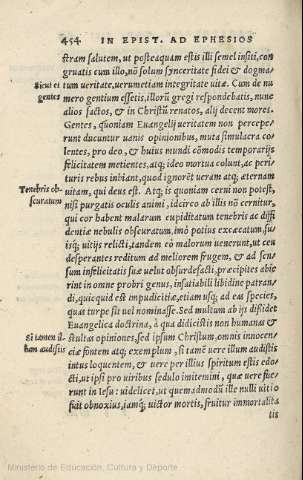 454 IN EPIST. AD EPHESIOS
stram salutem, ut posteaquam estis illi semel insiti, con
gruatis cum illo, nõ solum synceritate fidei & dogma
Sicut et tum ueritate, uerumetiam integritate uitæ. Cum de nu
gentes mero gentium essetis, illorũ gregi respondebatis, nunc
alios factos, & in Christũ renatos, alij decent mores.
Gentes, quoniam Euangelij ueritatem non percepe-
runt ducuntur uanis opinionibus, muta simulacra co
lentes, pro deo, & huius mundi cõmodis temporarijs
felicitatem metientes, atq; ideo mortua colunt, ac peri
turis rebus inhiant, quod ignorẽt ueram atq; æternam
Tenebris ob- uitam, qui deus est. Atq; is quoniam cerni non potest,
scuratum nisi purgatis oculis animi, idcirco ab illis nõ cernitur,
qui cor habent malarum cupiditatum tenebris ac diffi
dentia nebulis obscuratum, imò potius excæcatum, su-
isq; uitijs relicti, tandem eò malorum uenerunt, ut ceu
desperantes reditum ad meliorem frugem, & ad sen-
sum infelicitatis suæ uelut obsurdefacti, præcipites abie
rint in omne probri genus, insatiabili libidine patran-
di, quicquid est impudicitiæ, etiam usq; ad eas species,
quas turpe sit uel nominasse. Sed multum ab ijs dissidet
Euangelica doctrina, à qua didicistis non humanas &
Si tamen il- stultas opiniones, sed ipsum Christum, omnis innocen
lum audistis ciæ fontem atq; exemplum, si tamẽ uere illum audistis
intus loquentem, & uere per illius spiritum estis edo-
cti, ut ipsi pro uiribus sedulo imitemini, quæ uere fue-
runt in Iesu: uidelicet, ut quemadmodũ ille nulli uitio
fuit obnoxius, iamq; uictor mortis, fruitur immortalita
tis
Ministerio de Educación, Cultura y Deporte